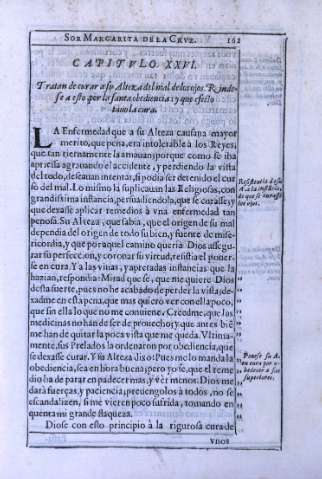 SOR MARGARITA DE LA CRVZ. 162
CAPITVLO XXVI.
Tratan de curar a su Alteza del mal de los ojos. Rinde-
se a esto por la santa obediencia: y que efeto
tuuo la cura.
LA Enfermedad que a su Alteza causaua mayor
merito, que pena, era intolerable à los Reyes,
que tan tiernamente la amauan; porque como se iba
apriessa agrauando el accidente, y perdiendo la vista
del todo, deseauan intentar, si podia ser detenido el cur
so del mal. Lo mismo la suplicauan las Religiosas, con
grandissima instancia, persuadiendola, que se curasse, y
que dexasse aplicar remedios à vna enfermedad tan
penosa. Su Alteza, que sabia, que el origen de su mal
dependia del origen de todo su bien, y fuente de mise-
ricordia, y que por aquel camino queria Dios assegu-
rar su perfeccion, y coronar su virtud, resistia el poner-
se en cura. Y a las viuas, y apretadas instancias que la
hazian, respondia: Mirad que se, que me quiere Dios
desta suerte, pues no he acabado de perder la vista; de-
xadme en esta pena, que mas quiero ver con ella poco,
que sin ella lo que no me conuiene. Creedme, que las
medicinas no han de ser de prouecho; y que antes biē
me han de quitar la poca vista que me queda. Vltima-
mente, sus Prelados la ordenaron por obediencia, que
se dexasse curar. Y su Alteza dixo: Pues me lo manda la
obediencia, sea en hora buena; pero yo sè, que el reme
dio ha de parar en padecer mas, y ver menos. Dios me
darà fuerças, y paciencia; preuengolo à todos, no se
escandalizen, si me vieren poco sufrida, tomando en
quenta mi grande flaqueza.
Diose con este principio à la rigurosa cura de
vnos
Resistiasse su
A. a la instācia
de que se curasse
los ojos.
Ponese su A.
en cura por o-
bedecer a sus
superiores.